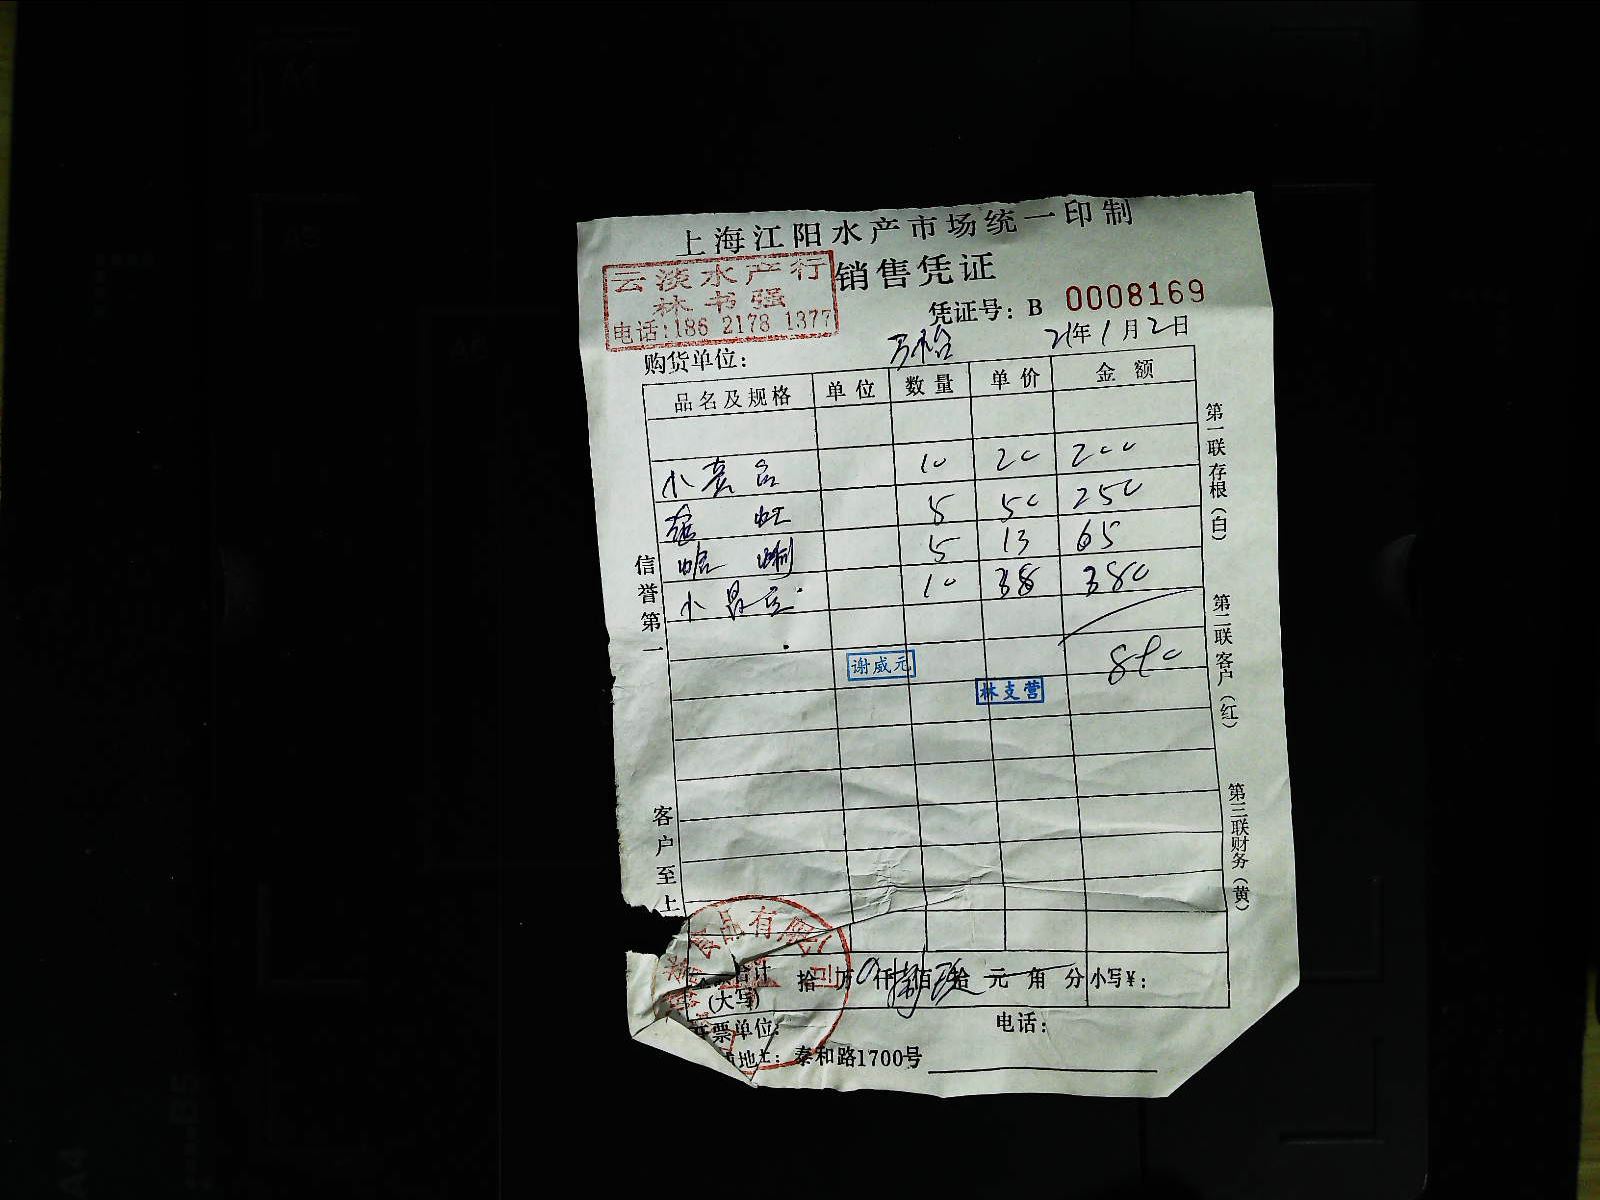 上海江阳水产市场统一印制
销售凭证
云淡水产行
林书强
电话:186 2178 1377
凭证号: B 0008169
21年1月2日
购货单位:
品名及规格 单位 数量 单价 金额
小 10 20 200
5 50 250
蛤蜊 5 13 65
小 10 38 380
谢威元
林支营
信誉第一
客户至上
第一联存根(白)
第二联客户(红)
第三联财务(黄)
食品有限公司
合计 拾 万 仟 佰 拾 元 角 分 小写¥:
(大写)
开票单位: 电话:
地址: 泰和路1700号